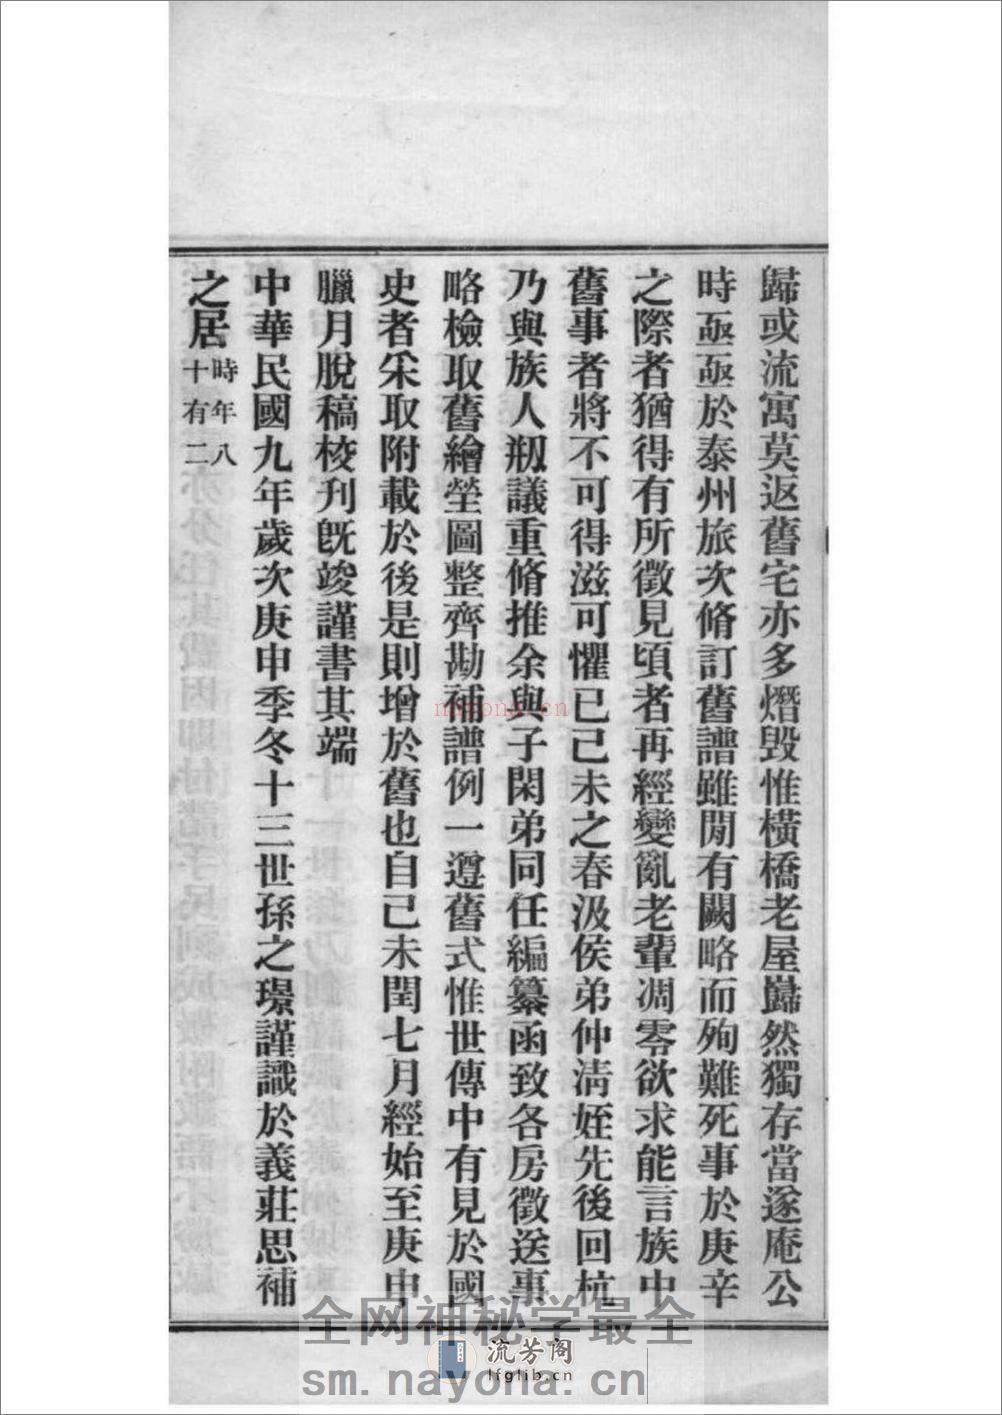 歸或流寓莫返舊宅亦多燬毀惟橫橋老屋巋然獨存當遂庵公
時亟亟於泰州旅次脩訂舊譜雖閒有闕略而殉難死事於庚辛
之際者猶得有所徵見頃者再經變亂老輩凋零欲求能言族中
舊事者將不可得滋可懼已己未之春汲侯弟仲淸姪先後回杭
乃與族人剏議重脩推余與子閑弟同任編纂函致各房徵送事
略檢取舊繪塋圖整齊勘補譜例一遵舊式惟世傳中有見於國
史者采取附載於後是則增於舊也自己未閏七月經始至庚申
臘月脫稿校刋旣竣謹書其端
中華民國九年歲次庚申季冬十三世孫之璟謹識於義莊思補
之居時年八十有二
nayona.cn
全网神秘学最全
流芳阁
lfglib.cn
sm.nayona.cn